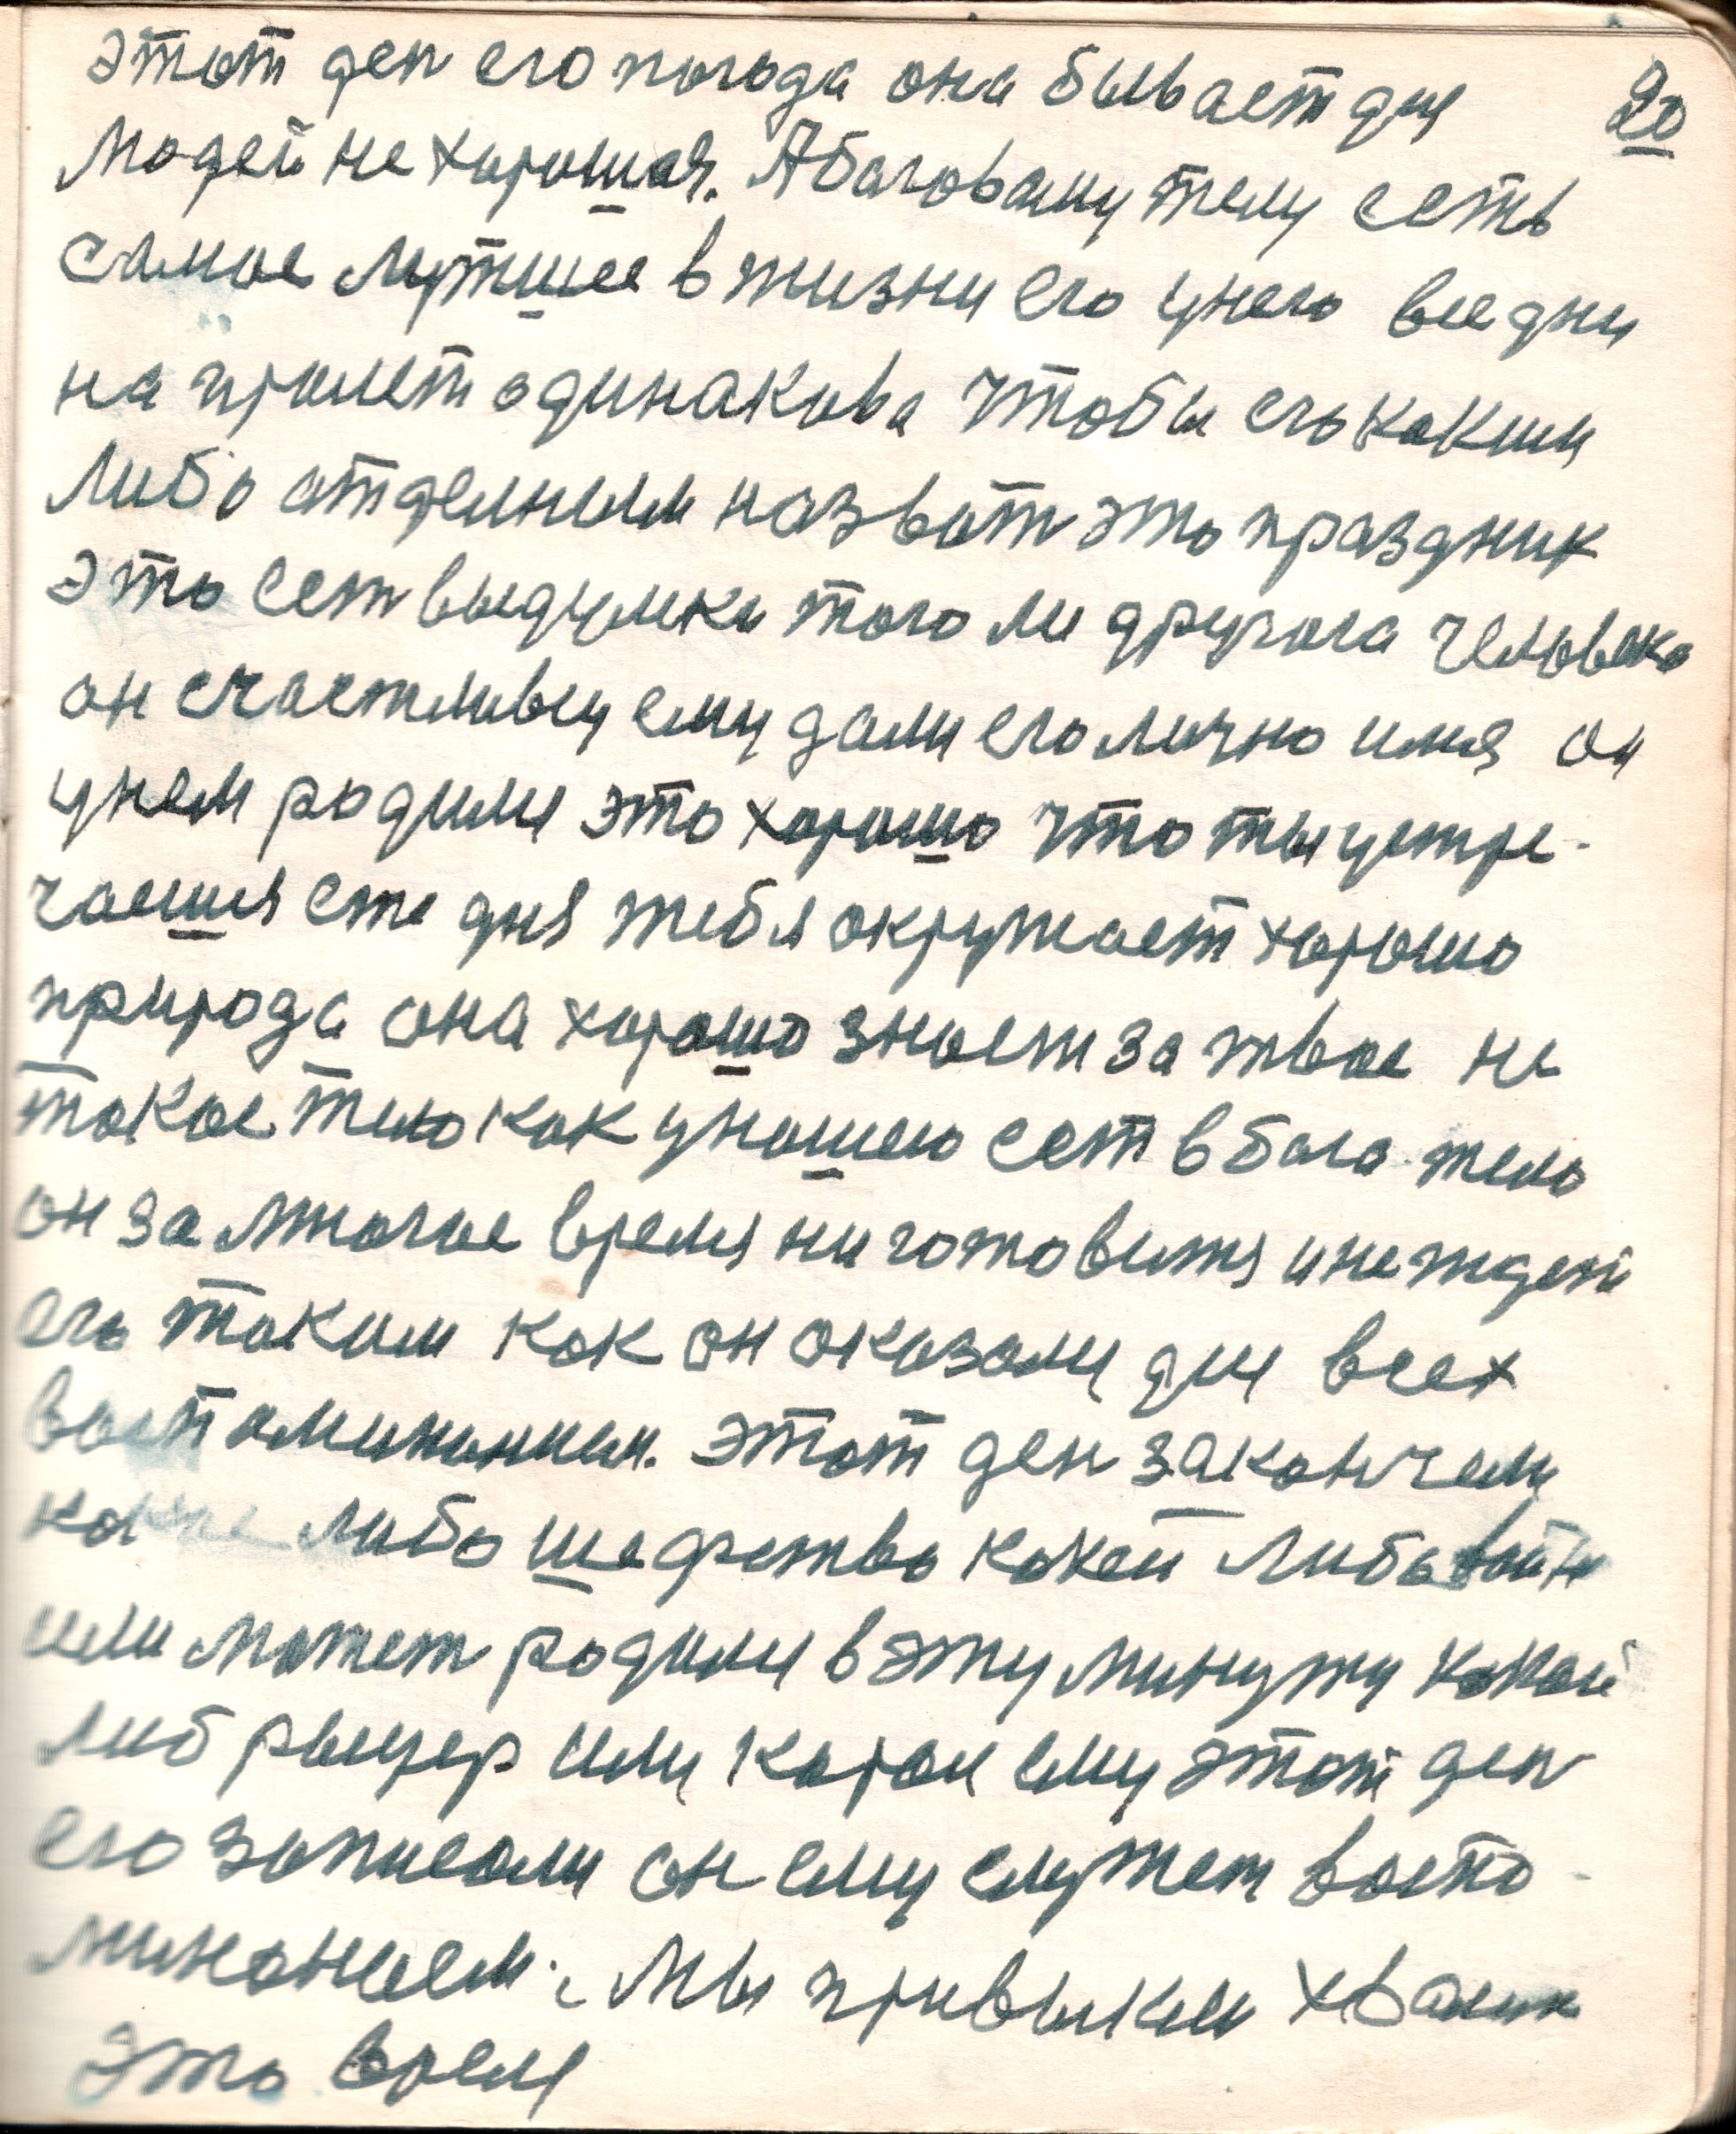 20
этот ден его погода она бывает для
людей не хорошая. А боговому телу есть
самое лутшее в жизни его у него все дни
на цвет одинакова чтобы его каким
либо отделным назват это праздник
это сет выдумки того ли другога человека
он счастливец ему дали его лично имя он
у нем родили это хорошо что ты устре-
чаешся сте дня тебя окружает хорошо
природа она хорошо знает за твое не
такое тело как у нашего сет в бога тело
он за многое время ни готовитя и не ждет
его таким как он оказали для всех
воспоминанием. этот ден закончели
либо шефство какей либо войн
или может родили в эту минуту какой
либ рыцер или карои ему этот ден
его записали он ему служет воспо-
минанием. Мы привыкли хвалит
это время